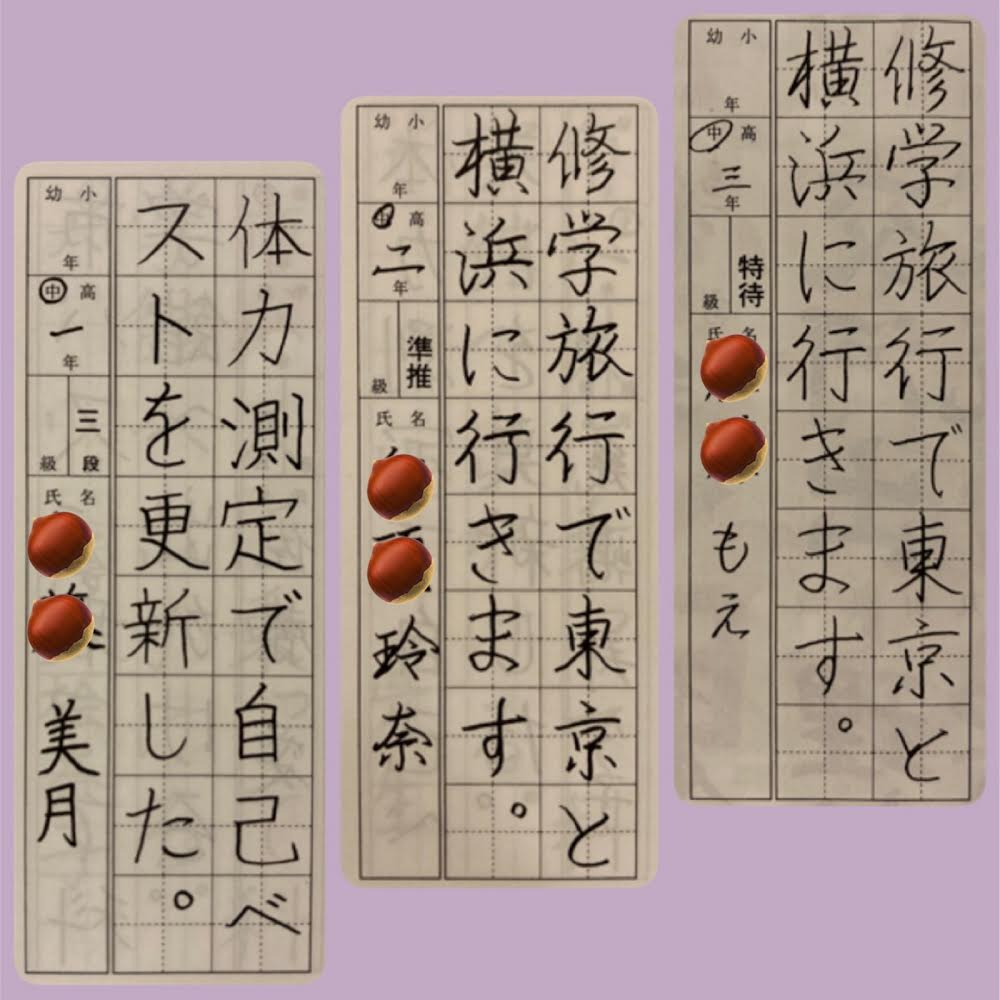 修学旅行で東京と
横浜に行きます。
幼 小
年
中 高
三
年
特待
級
もえ
修学旅行で東京と
横浜に行きます。
幼 小
年
中 高
二
年
準推
級
氏 名
玲奈
体力測定で自己ベ
ストを更新した。
幼 小
年
中 高
一
年
三段
級
氏 名
美月